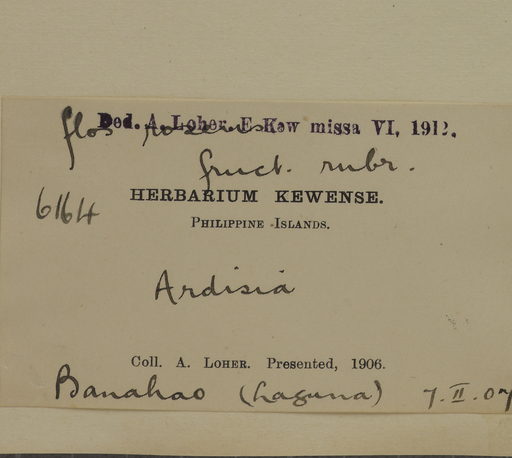 Ded. A. Loher. E Kew missa VI, 1912.
flos roseus
fruct. rubr.
6164
HERBARIUM KEWENSE.
PHILIPPINE ISLANDS.
Ardisia
Coll. A. LOHER. Presented, 1906.
Banahao (Laguna) 7.II.07